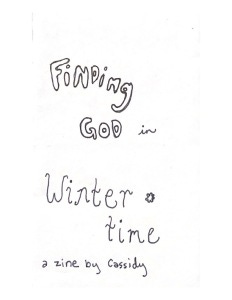 FiNDiNg
GOD in
Winter
time
a zine by Cassidy